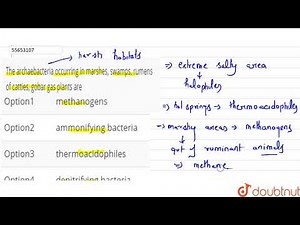 55653107
→ harsh habitats
The archaebacteria occurring in marshes, swamps, rumens
of cattles, gobar gas plants are
Option1 methanogens
Option2 ammonifying bacteria
Option3 thermoacidophiles
Option4 denitrifying bacteria
⇒ extreme salty area
↓
halophiles
⇒ hot springs → thermoacidophiles
→ marshy areas → methanogens
gut of ruminant animals
⇒ methane
doubtnut